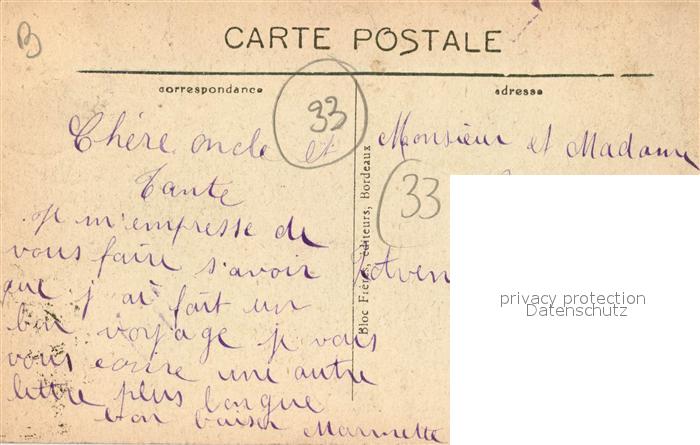 B
CARTE POSTALE
correspondance
adresse
33
Chére oncle et
Tante
Je m'empresse de
vous faire s'avoir
que j'ai fait un
bon voyage je vais
vous écrire une autre
lettre plus longue
bon baiser Marinette
Bloc Frères, éditeurs, Bordeaux
Monsieur et Madame
33
privacy protection
Datenschutz